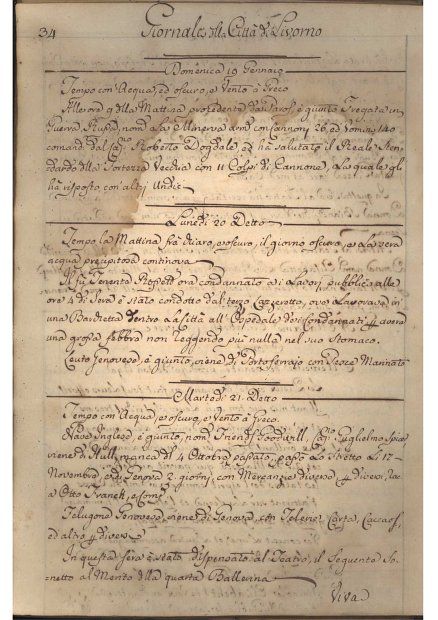 34 Giornale della Città di Livorno
Domenica 19 Gennajo
Tempo con Acqua, ed oscuro, e Vento a Greco
Alle ore 9 della Mattina procedente da Paros è giunta Fregata in
Guerra Russa, nom.a La Minerva arm. con Cannoni 26, ed Uomini 140
comand. dal Cap. Roberto Dogdale, ed ha salutato il Reale Sten-
dardo della Fortezza Vecchia con 11 Colpi di Cannone, La quale gli
ha risposto con altri Undici
Lunedì 20 Detto
Tempo la Mattina fra chiaro, e oscuro, il giorno oscuro, e La sera
acqua precipitosa continova
Il fu Tenente Rispetti ora condannato a i Lavori pubblici alle
ore di Sera è stato condotto dal terzo Lazzeretto, ove Lavorava in
una Barchetta dentro La Città all' Ospedale dei Condannati p avere
una grossa febbre non reggendo più nulla nel suo Stomaco.
Leuto Genovese, è giunto, viene di Portoferrajo con Pesce Marinato
Martedì 21. Detto
Tempo con Acqua, e oscuro, e Vento a Greco.
Nave Inglese, è giunta, nom. Friends Goodwill, Cap. Guglielmo
viene di Hull, manca dal 4 Ottobre passato, passò Lo Stretto Li 17
Novembre, e di Genova 2. giorni, con Mercanzie diverse p diversi, rac.
a Otto Franck, e Comp.
Felugone Genovese, viene di Genova, con Telerie, Carta, Caccaos,
ed altro p diversi
In questa sera è stato dispensato al Teatro, il Seguente So-
netto al Merito della quarta Ballerina
Viva